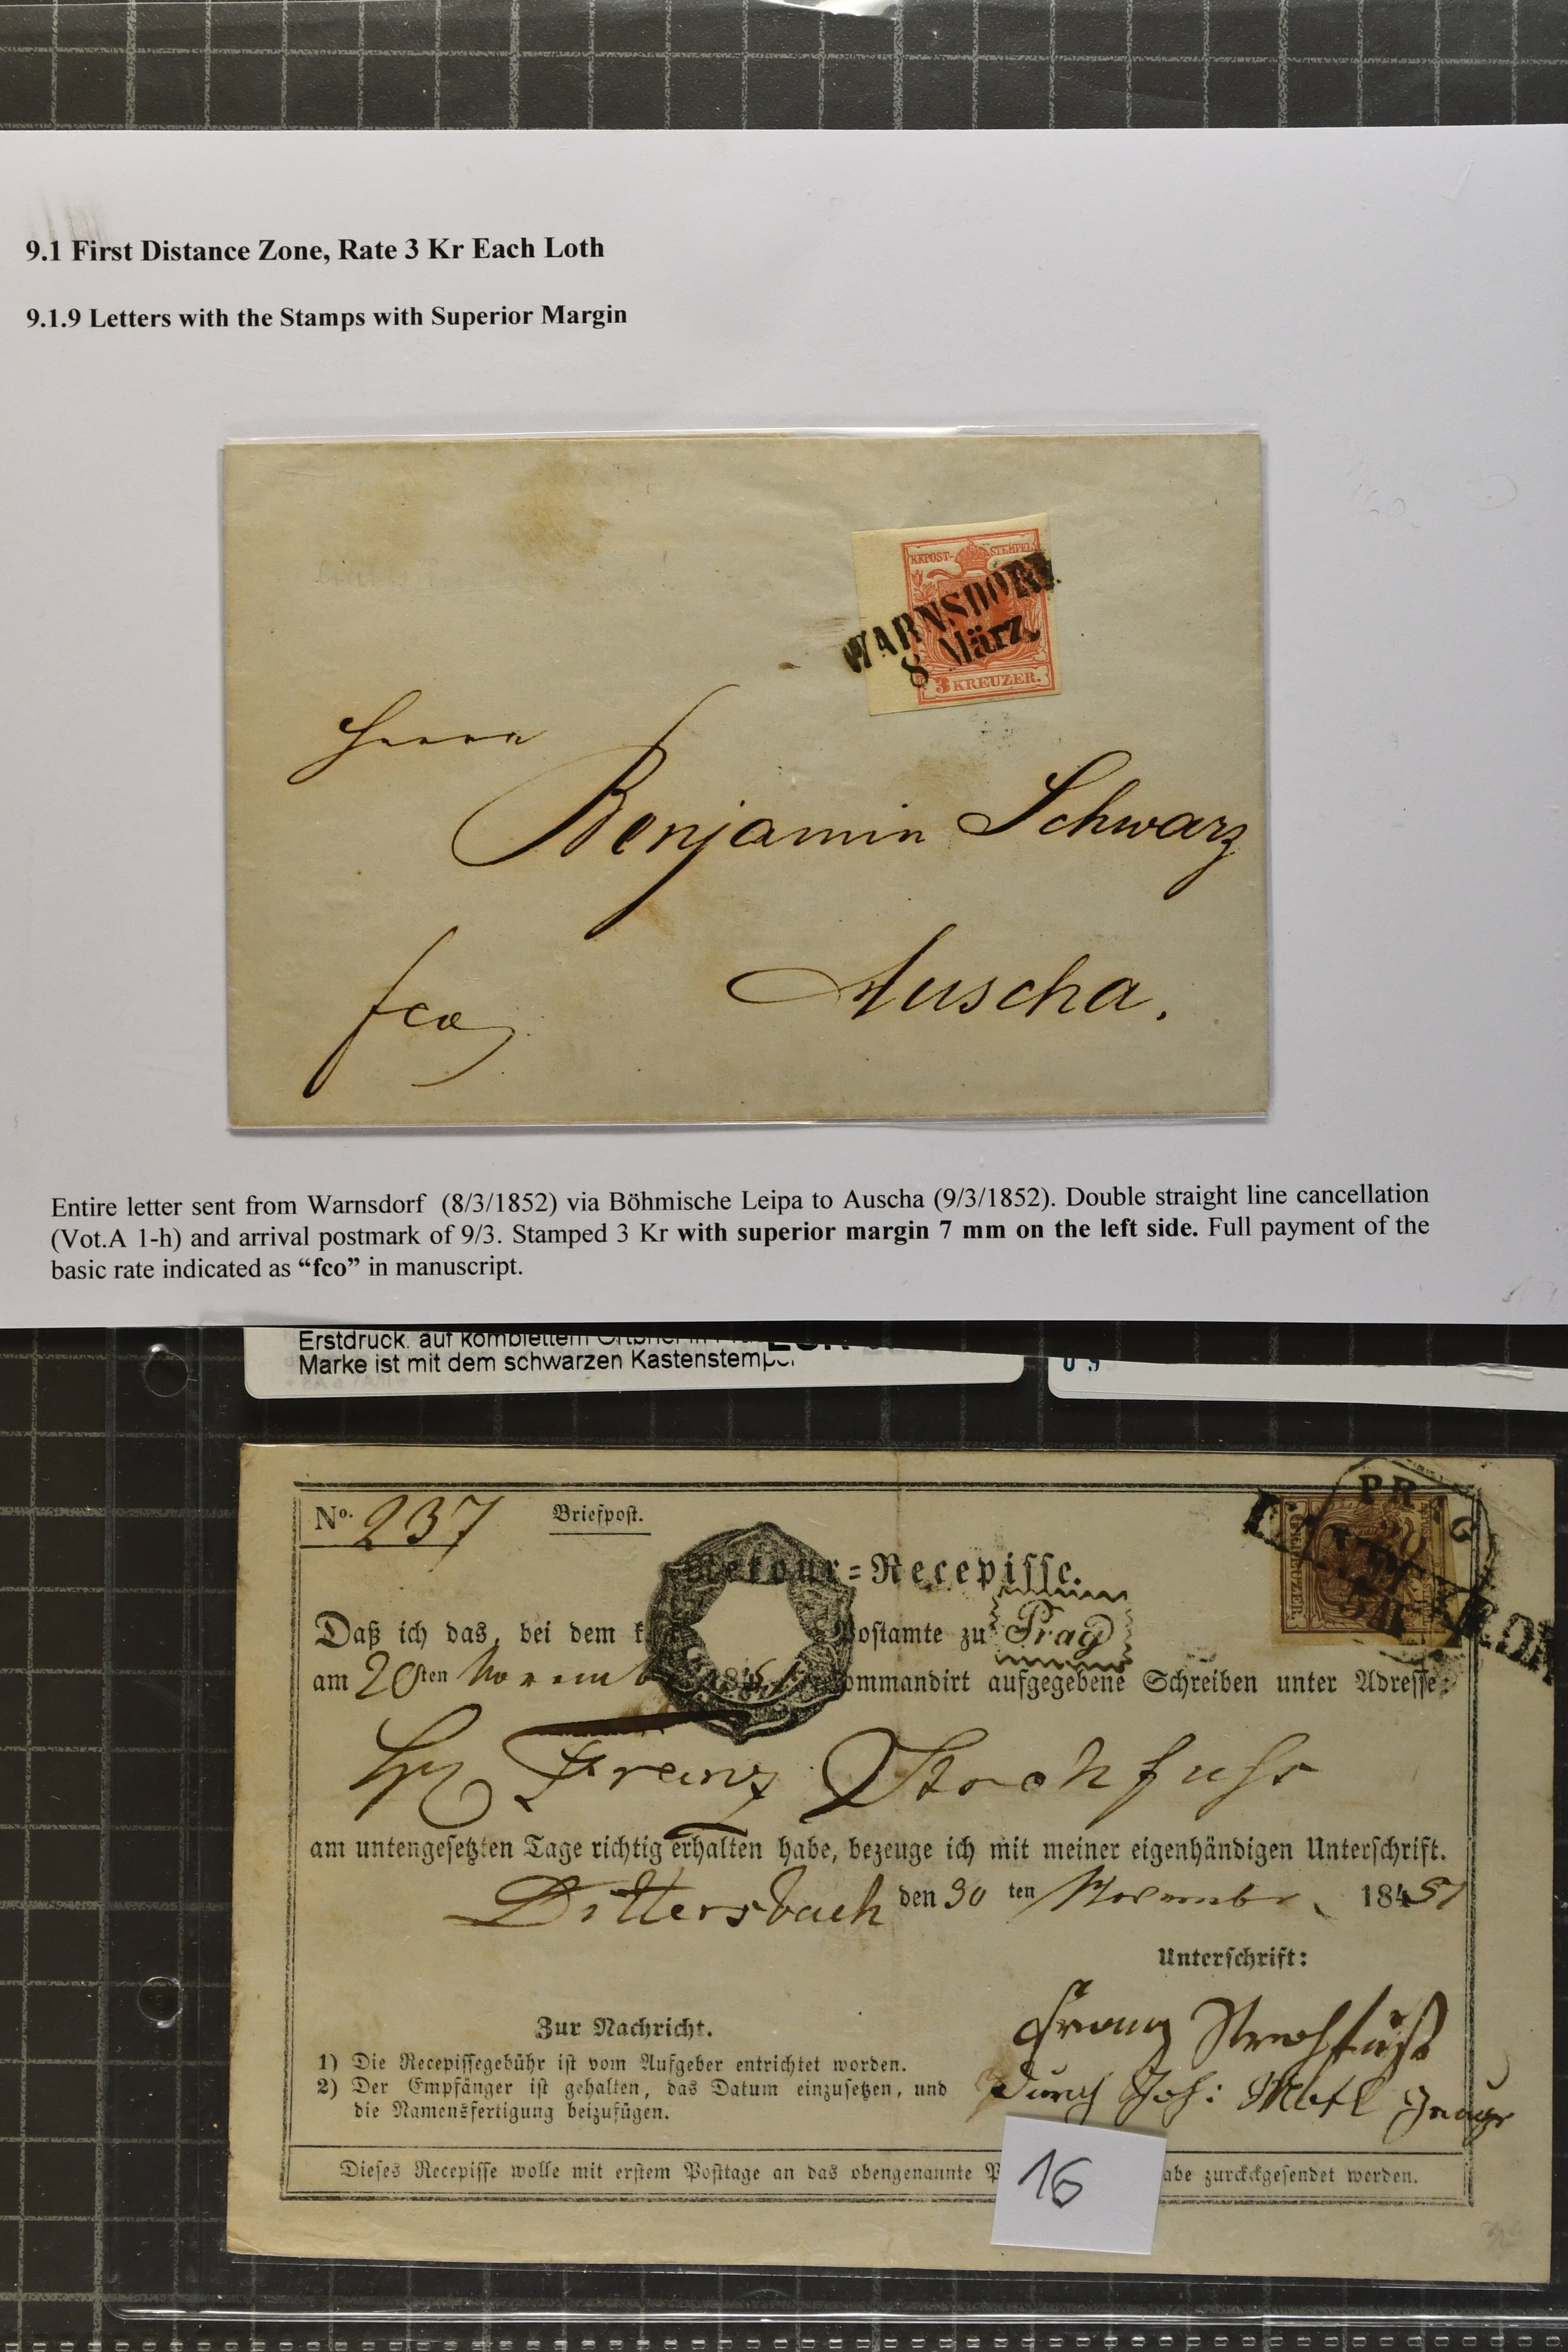 9.1 First Distance Zone, Rate 3 Kr Each Loth
9.1.9 Letters with the Stamps with Superior Margin
KKPOST-STEMPEL
WARNSDORF.
8 März.
3 KREUZER.
Herrn
Benjamin Schwarz
Auscha.
fco
Entire letter sent from Warnsdorf (8/3/1852) via Böhmische Leipa to Auscha (9/3/1852). Double straight line cancellation
(Vot.A 1-h) and arrival postmark of 9/3. Stamped 3 Kr with superior margin 7 mm on the left side. Full payment of the
basic rate indicated as “fco” in manuscript.
Erstdruck. auf komplettem
Marke ist mit dem schwarzen Kastenstempel
No. 237
Briefpost.
PRAG
KREUZER.
Retour=Recepisse.
Daß ich das, bei dem k. Postamte zu Prag
am 20sten Novemb 1851 recommandirt aufgegebene Schreiben unter Adresse:
Franz Strohfuss
am untengesetzten Tage richtig erhalten habe, bezeuge ich mit meiner eigenhändigen Unterschrift.
Dittersbach den 30 ten November 1851
Unterschrift:
Franz Strohfuß
durch Joh:
Zur Nachricht.
1) Die Recepissegebühr ist vom Aufgeber entrichtet worden.
2) Der Empfänger ist gehalten, das Datum einzusetzen, und
die Namensfertigung beizufügen.
Dieses Recepisse wolle mit erstem Posttage an das obengenannte P abe zurckckgesendet werden.
16